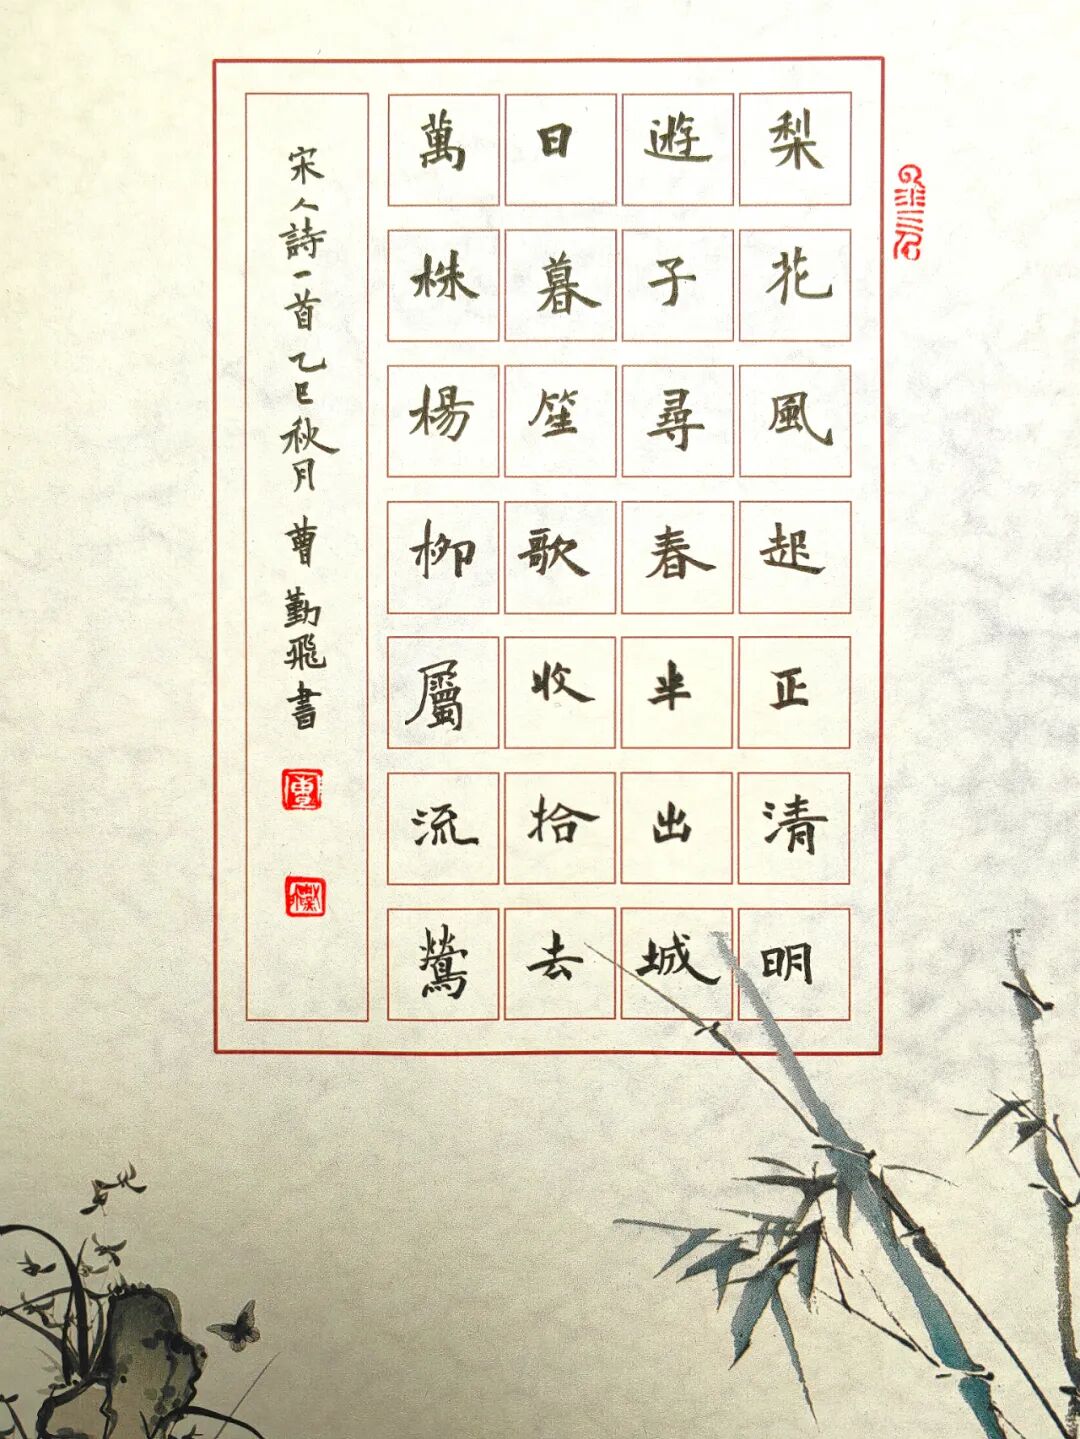 梨花風起正清明
遊子尋春半出城
日暮笙歌收拾去
萬株楊柳屬流鶯
宋人詩一首乙巳秋月曹勤飛書